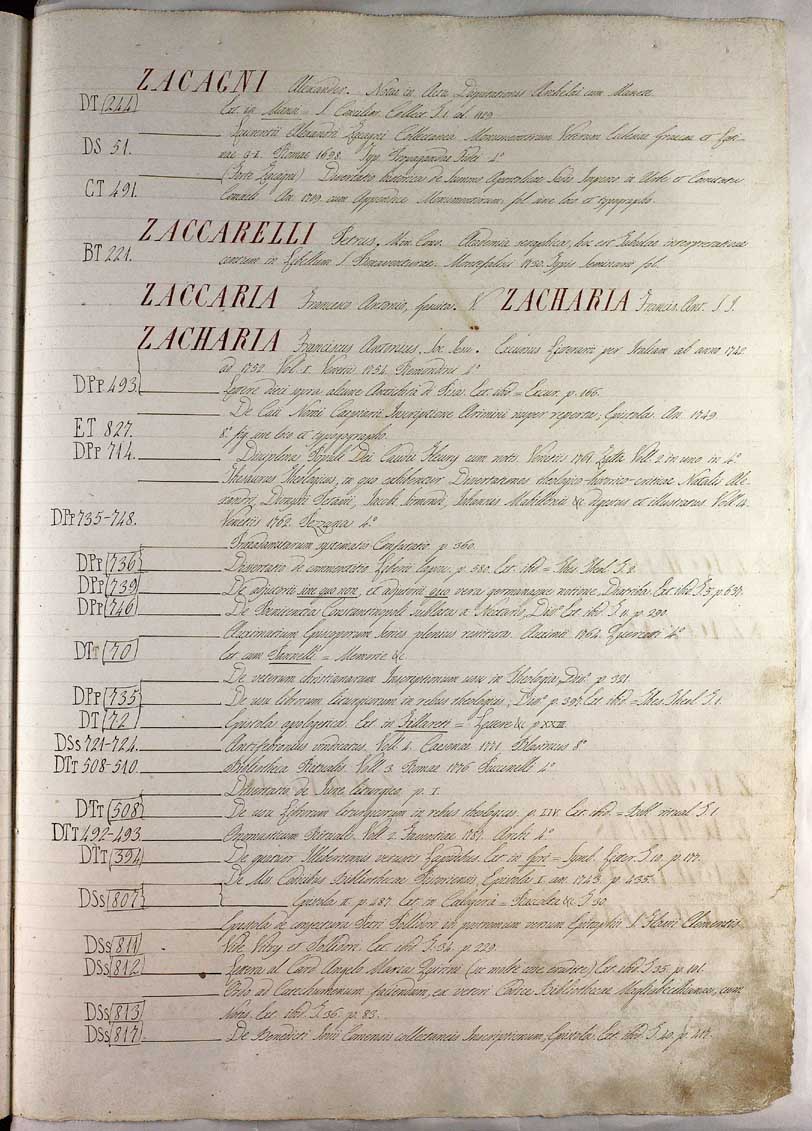 ZACAGNI Alexander. Notae in Acta Disputationis Archelai cum Manete
DT (244) Ext. in Mansi = S. Concilior. Collect. T. I. col. 1129
Laurentii Alexandri Zacagni Collectanea Monumentorum Veterum Ecclesiae Graecae et Lati-
DS 51. nae Romae 1698. Typ. Propagandae Fidei 4.°
(Forte Zacagni) Dissertatio historica de Summo Apostolicae Sedis Imperio in Urbe et Comitatu
CT 491. Comacli. An. 1709 cum Appendice Monumentorum. fol. sine loco et typographo.
ZACCARELLI Petrus, Mon. Academia hoc est Eubuleae interpretationes
BT 221. centum in Libellum S. Bonaventurae. Montefalisci 1720. Typis Seminarii fol.
ZACCARIA Francesco Antonio, Gesuita. V. ZACHARIA Francis. Ant. S. J.
ZACHARIA Franciscus Antonius, Soc. Jesu. Excursus Literarii per Italiam ab anno 1742
ad 1752. Vol. I. Venetiis 1754. Remondini 4.°
DPp 493. Lettere dieci sopra alcune Antichità di Pisa. Ext. ibid = Excur. p. 166.
De Caii Nonii Caepiani Inscriptione Arimini nuper reperta; Epistola. An. 1749.
ET 827. 8.° fig. sine loco et typographo.
DPp 714. Disciplina Populi Dei Claudii Fleury cum notis. Venetiis 1761. Zatta Voll. 2 in uno in 4.°
Thesaurus Theologicus, in quo exhibentur Dissertationes theologico-historico-criticae Natalis Ale-
xandri, Dionysii Petavii, Jacobi Sirmondi, Johannis Mabillonii &c. digestus et illustratus. Voll. 14.
DPp 735-748. Venetiis 1762. Pezzana 4.°
Praeadamitarum systematis Confutatio p. 360.
DPp (736) Dissertatio de commentitio Liberii lapsu. p. 580. Ext. ibid = Thes. Theol. T. 2.
DPp (739) De adjutorii sine quo non, et adjutorii quo vera germanaque notione, Diatriba. Ext. ibid T. 5. p. 637.
DPp (746) De Poenitentia Constantinopoli sublata a Nectario, Diss.° Ext. ibid T. 11. p. 290.
Auximatium Episcoporum Series plenius restituta. Auximi 1764. Quercetti 4.°
DTt (70) Ext. cum Pannelli = Memorie &c.
De veterum christianarum Inscriptionum usu in Theologia, Diss.° p. 321.
DPp (735) De usu librorum liturgicorum in rebus theologicis, Diss.° p. 397. Ext. ibid = Thes. Theol. T. 1.
DT (72) Epistola apologetica. Ext. in = Lettere &c. p. XXIII.
DSs 721-724. Antifebronius vindicatus. Voll. 4. Caesenae 1771. Blasinius 8.°
DTt 508-510. Bibliotheca Ritualis. Voll. 3. Romae 1776. Puccinelli 4.°
Dissertatio de Jure liturgico. p. I.
DTt (508) De usu Librorum liturgicorum in rebus theologicis. p. LIV. Ext. ibid = Bibl. ritual. T. 1.
DTt 492-493 Onomasticon Rituale. Voll. 2. Faventiae 1787. Archi 4.°
DTt (394) De quatuor veteris Lapidibus. Ext. in Gori = Symb. Liter. T. 10. p. 177.
De Mss. Codicibus Bibliothecae Pistoriensis, Epistola I. an. 1743. p. 435.
DSs (807) Epistola II. p. 487. Ext. in Calogerà = Raccolta &c. T. 30.
Epistola de conjectura Petri Pollidori ad postremum versum Epitaphii S. Flavii Clementis
DSs (811) Vide, Vitry et Pollidori. Ext. ibid. T. 34. p. 229.
DSs (812) Lettera al Card. Angelo Maria Quirini (in molte cose erudite) Ext. ibid T. 35. p. 101.
Ordo ad Catechumenum faciendum, ex veteri Codice Bibliothecae Magliabecchianae, cum
DSs (813) Notis. Ext. ibid. T. 36. p. 83.
DSs (817) De Benedicti Jovii Comensis collectaneis Inscriptionum, Epistola. Ext. ibid. T. 40. p. 417.